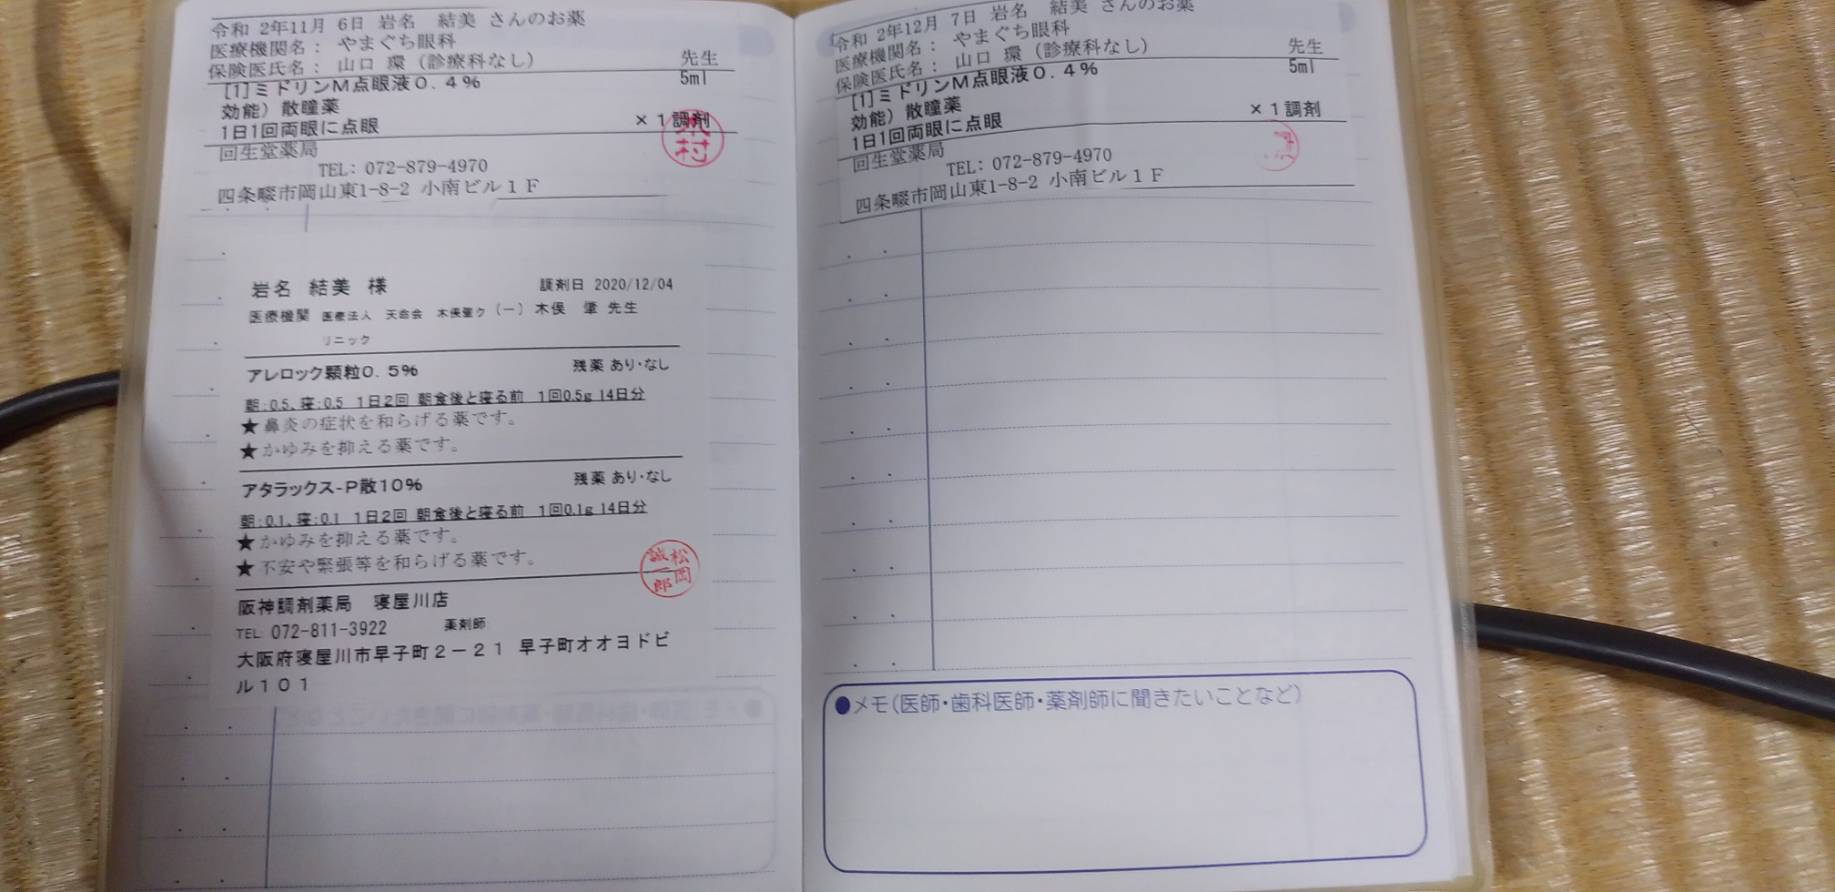 令和 2年11月 6日 岩名 結美 さんのお薬
医療機関名： やまぐち眼科
保険医氏名： 山口 環（診療科なし） 先生
[1]ミドリンM点眼液0．4％ 5ml
効能）散瞳薬
1日1回両眼に点眼 ×1調剤
回生堂薬局
TEL：072-879-4970
四条畷市岡山東1-8-2 小南ビル1F
岩名 結美 様 調剤日 2020/12/04
医療機関 医療法人 天命会 木俣肇ク（ー）木俣 肇 先生
リニック
アレロック顆粒0．5％ 残薬 あり・なし
朝:0.5、寝:0.5 1日2回 朝食後と寝る前 1回0.5g 14日分
★鼻炎の症状を和らげる薬です。
★かゆみを抑える薬です。
アタラックス-P散10％ 残薬 あり・なし
朝:0.1、寝:0.1 1日2回 朝食後と寝る前 1回0.1g 14日分
★かゆみを抑える薬です。
★不安や緊張等を和らげる薬です。
松岡誠一郎
阪神調剤薬局 寝屋川店
TEL 072-811-3922 薬剤師
大阪府寝屋川市早子町2－21 早子町オオヨドビ
ル101
令和 2年12月 7日 岩名 結美 さんのお薬
医療機関名： やまぐち眼科
保険医氏名： 山口 環（診療科なし） 先生
[1]ミドリンM点眼液0．4％ 5ml
効能）散瞳薬
1日1回両眼に点眼 ×1調剤
回生堂薬局
TEL：072-879-4970
四条畷市岡山東1-8-2 小南ビル1F
●メモ(医師・歯科医師・薬剤師に聞きたいことなど)